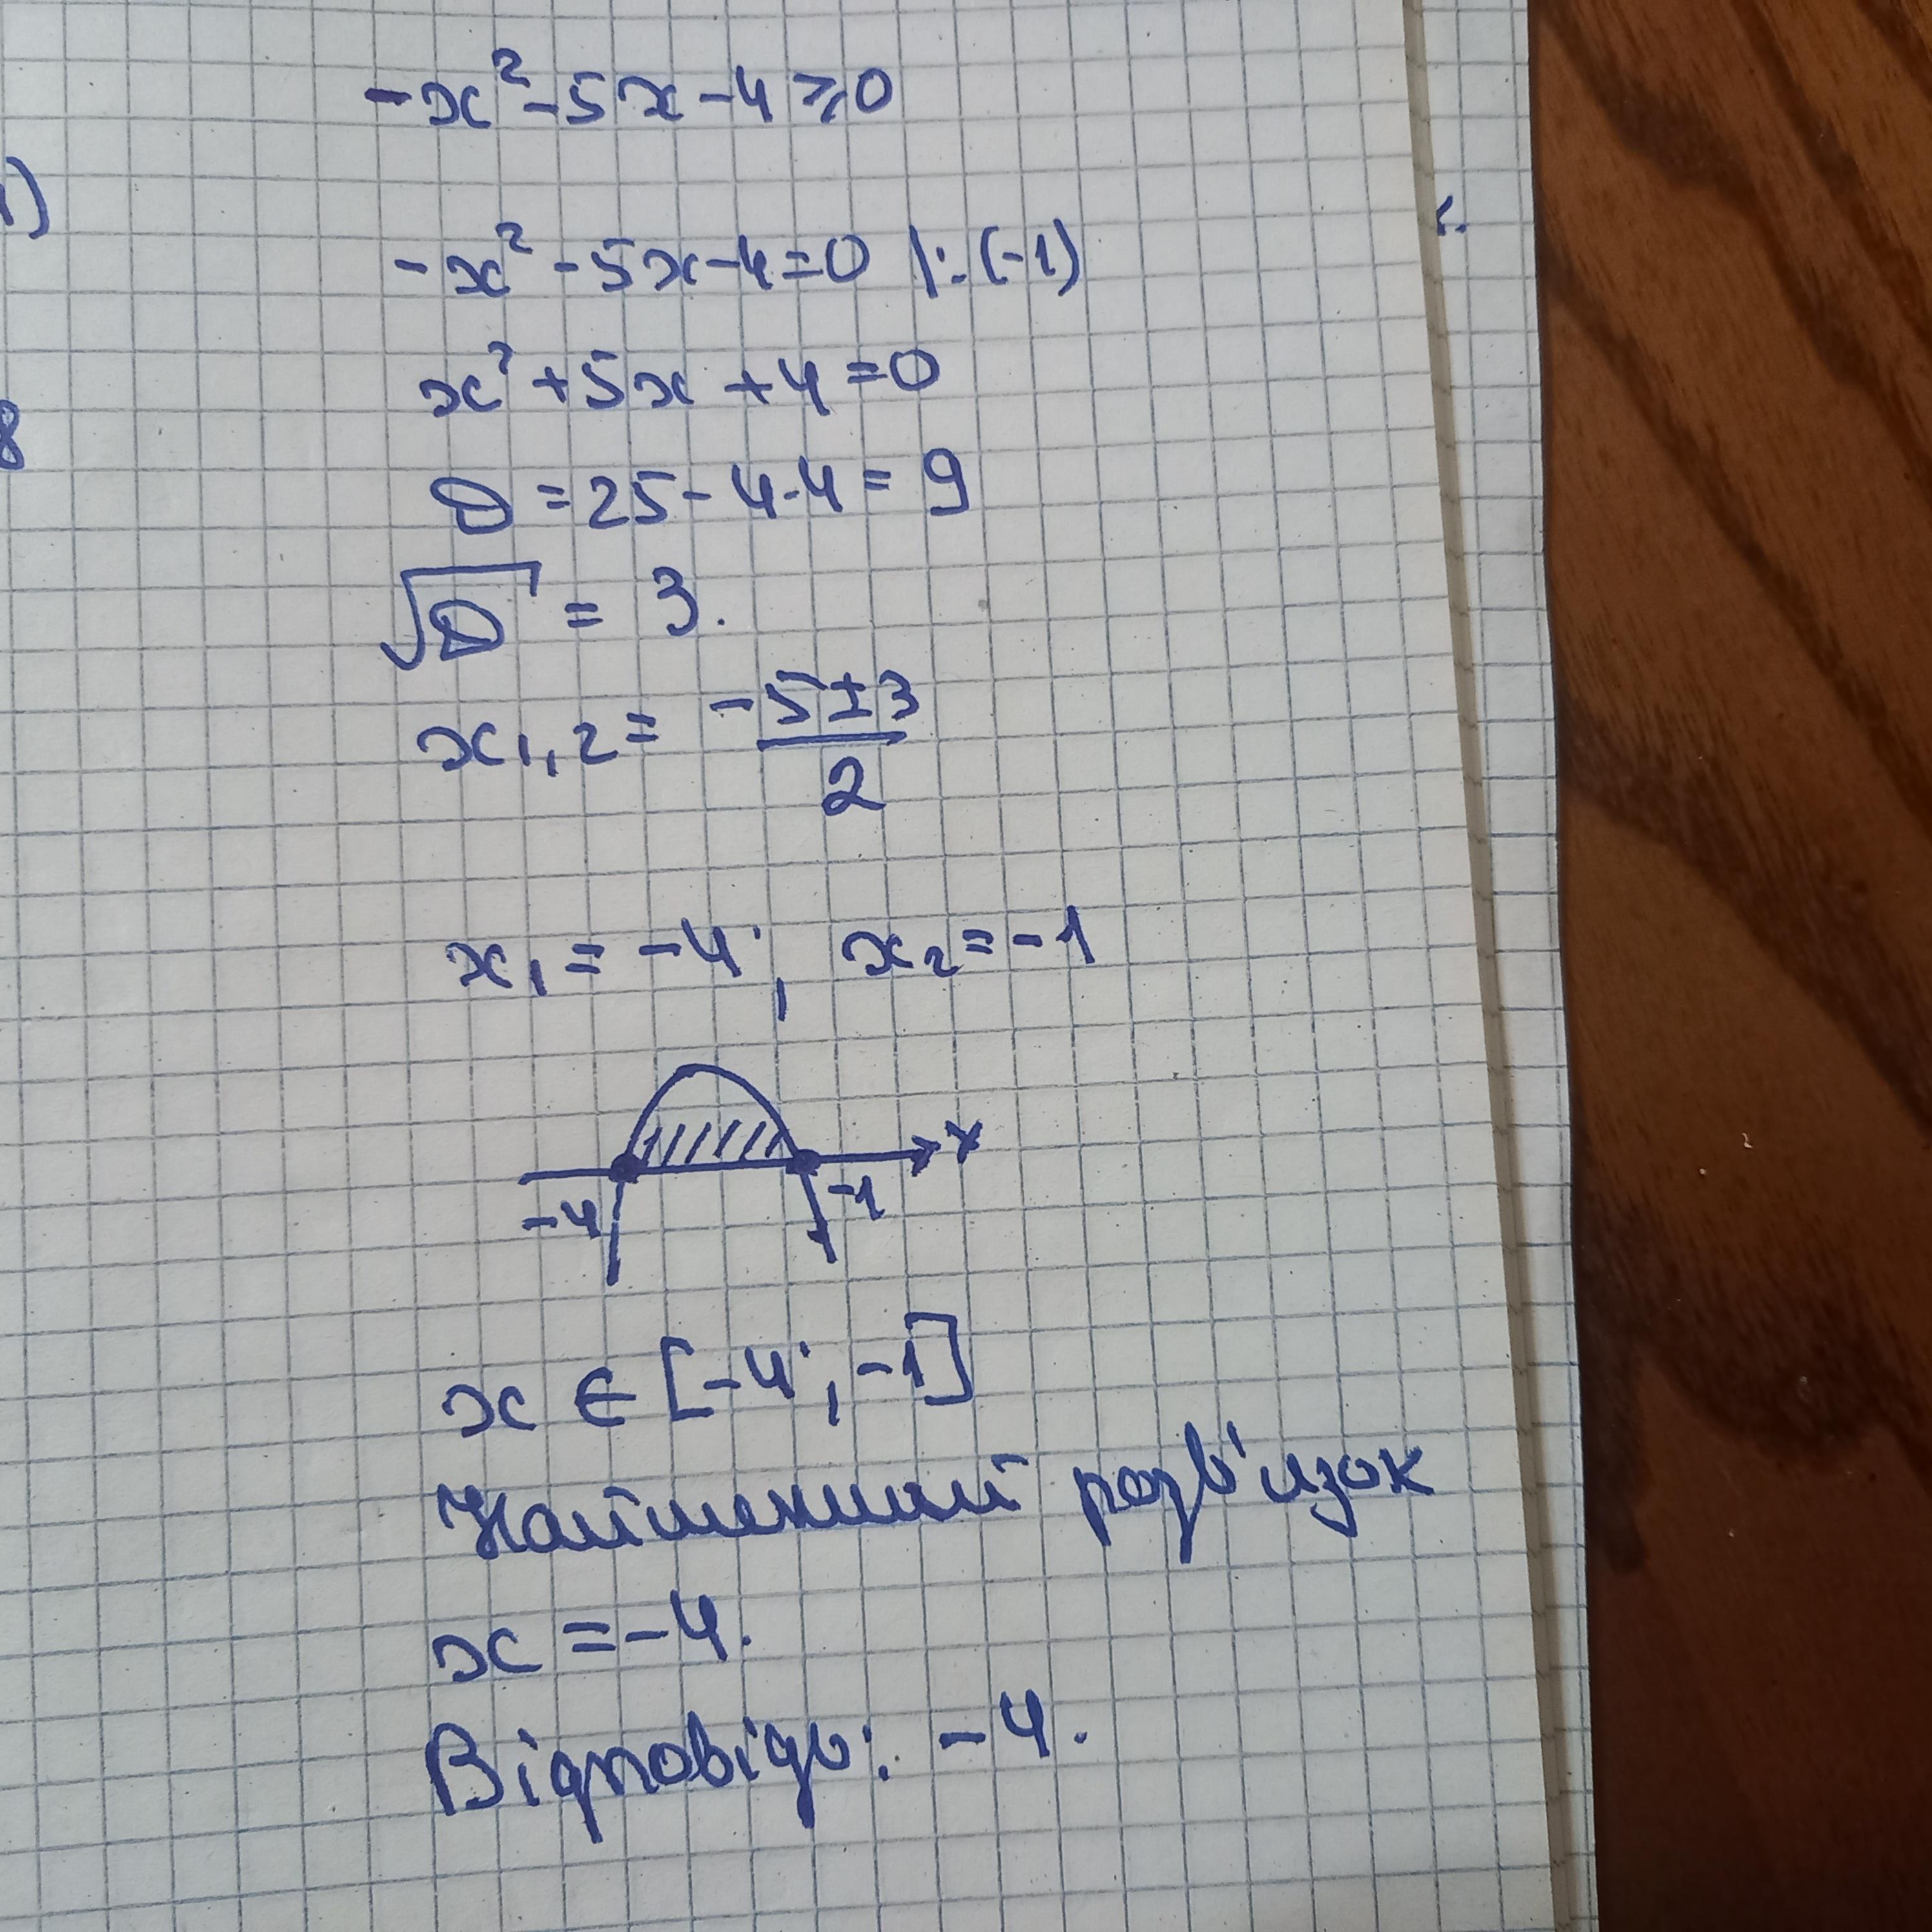 -x²-5x-4≥0
1)
-x²-5x-4=0 |:(-1)
x²+5x+4=0
8
D=25-4·4=9
√D = 3.
x₁,₂= (-5±3)/2
x₁=-4; x₂=-1
-4 -1 x
x∈[-4;-1]
Найменший розв'язок
x=-4.
Відповідь: -4.